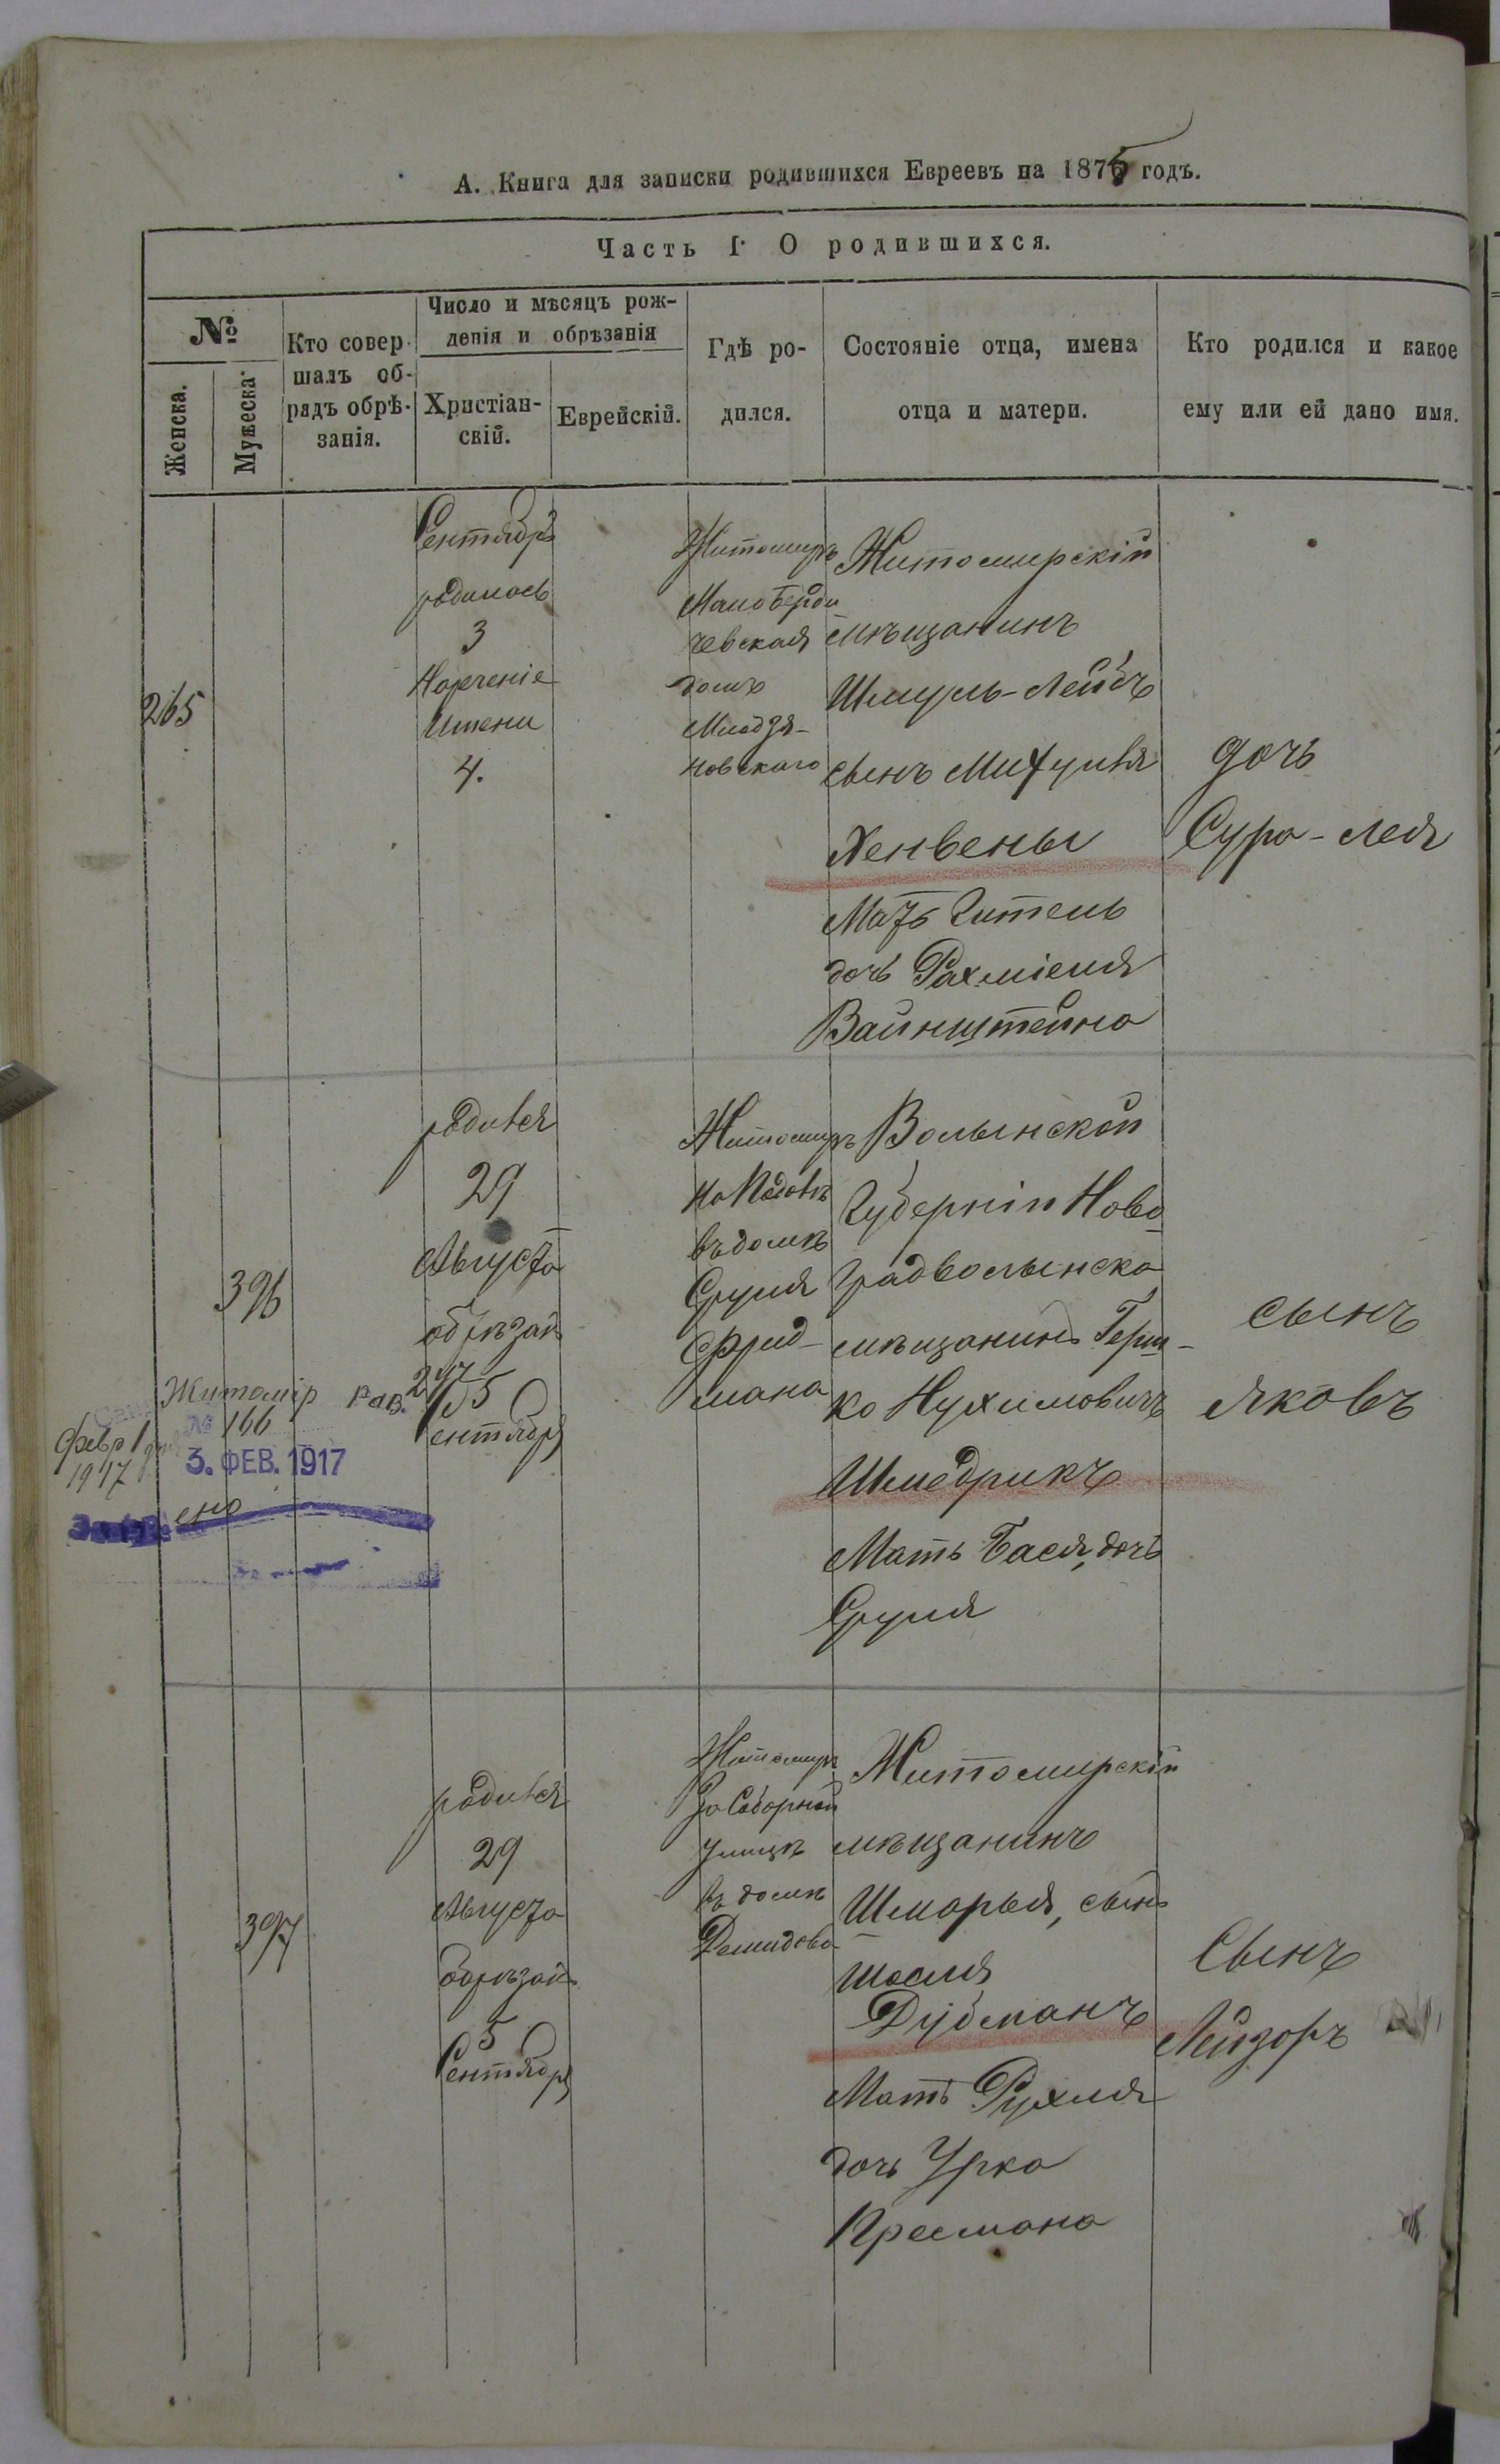 А. Книга для записки родившихся Евреевъ на 1875 годъ.
Часть I. О родившихся.
№
Женска.
Мужеска.
Кто совер-
шалъ об-
рядъ обрѣ-
занія.
Число и мѣсяцъ рож-
денія и обрѣзанія
Христіан-
скій.
Еврейскій.
Гдѣ ро-
дился.
Состояніе отца, имена
отца и матери.
Кто родился и какое
ему или ей дано имя.
265
Сентября
родилась
3
Нареченіе
Имени
4.
Житомиръ
Мало Берди
чевская
домъ
Млодзя-
новскаго
Житомирскій
мѣщанинъ
Шмуль-Лейбъ
сынъ
Хенвены
Мать Гитель
дочь Рахміеля
Вайнштейна
дочь
Сура-Лея
396
родился
29
Августа
обрѣзанъ
5
Сентября
Житомиръ
въ домѣ
Сруля
Фрид-
мана
Волынской
Губерніи Ново
градволынско
мѣщанинъ Герш-
ко Нухимовичъ
Шмедрикъ
Мать Бася, дочь
Сруля
сынъ
Яковъ
Житомір Рав.
№ 166
Февр 1
1917
3. ФЕВ. 1917
397
родился
29
Августа
обрѣзанъ
5
Сентября
Житомиръ
По Соборной
улицѣ
въ домѣ
Демидова
Житомирскій
мѣщанинъ
Шмарья, сынъ
Иосля
Дубманъ
Мать Рухля
дочь Урка
Пресмана
Сынъ
Лейзоръ